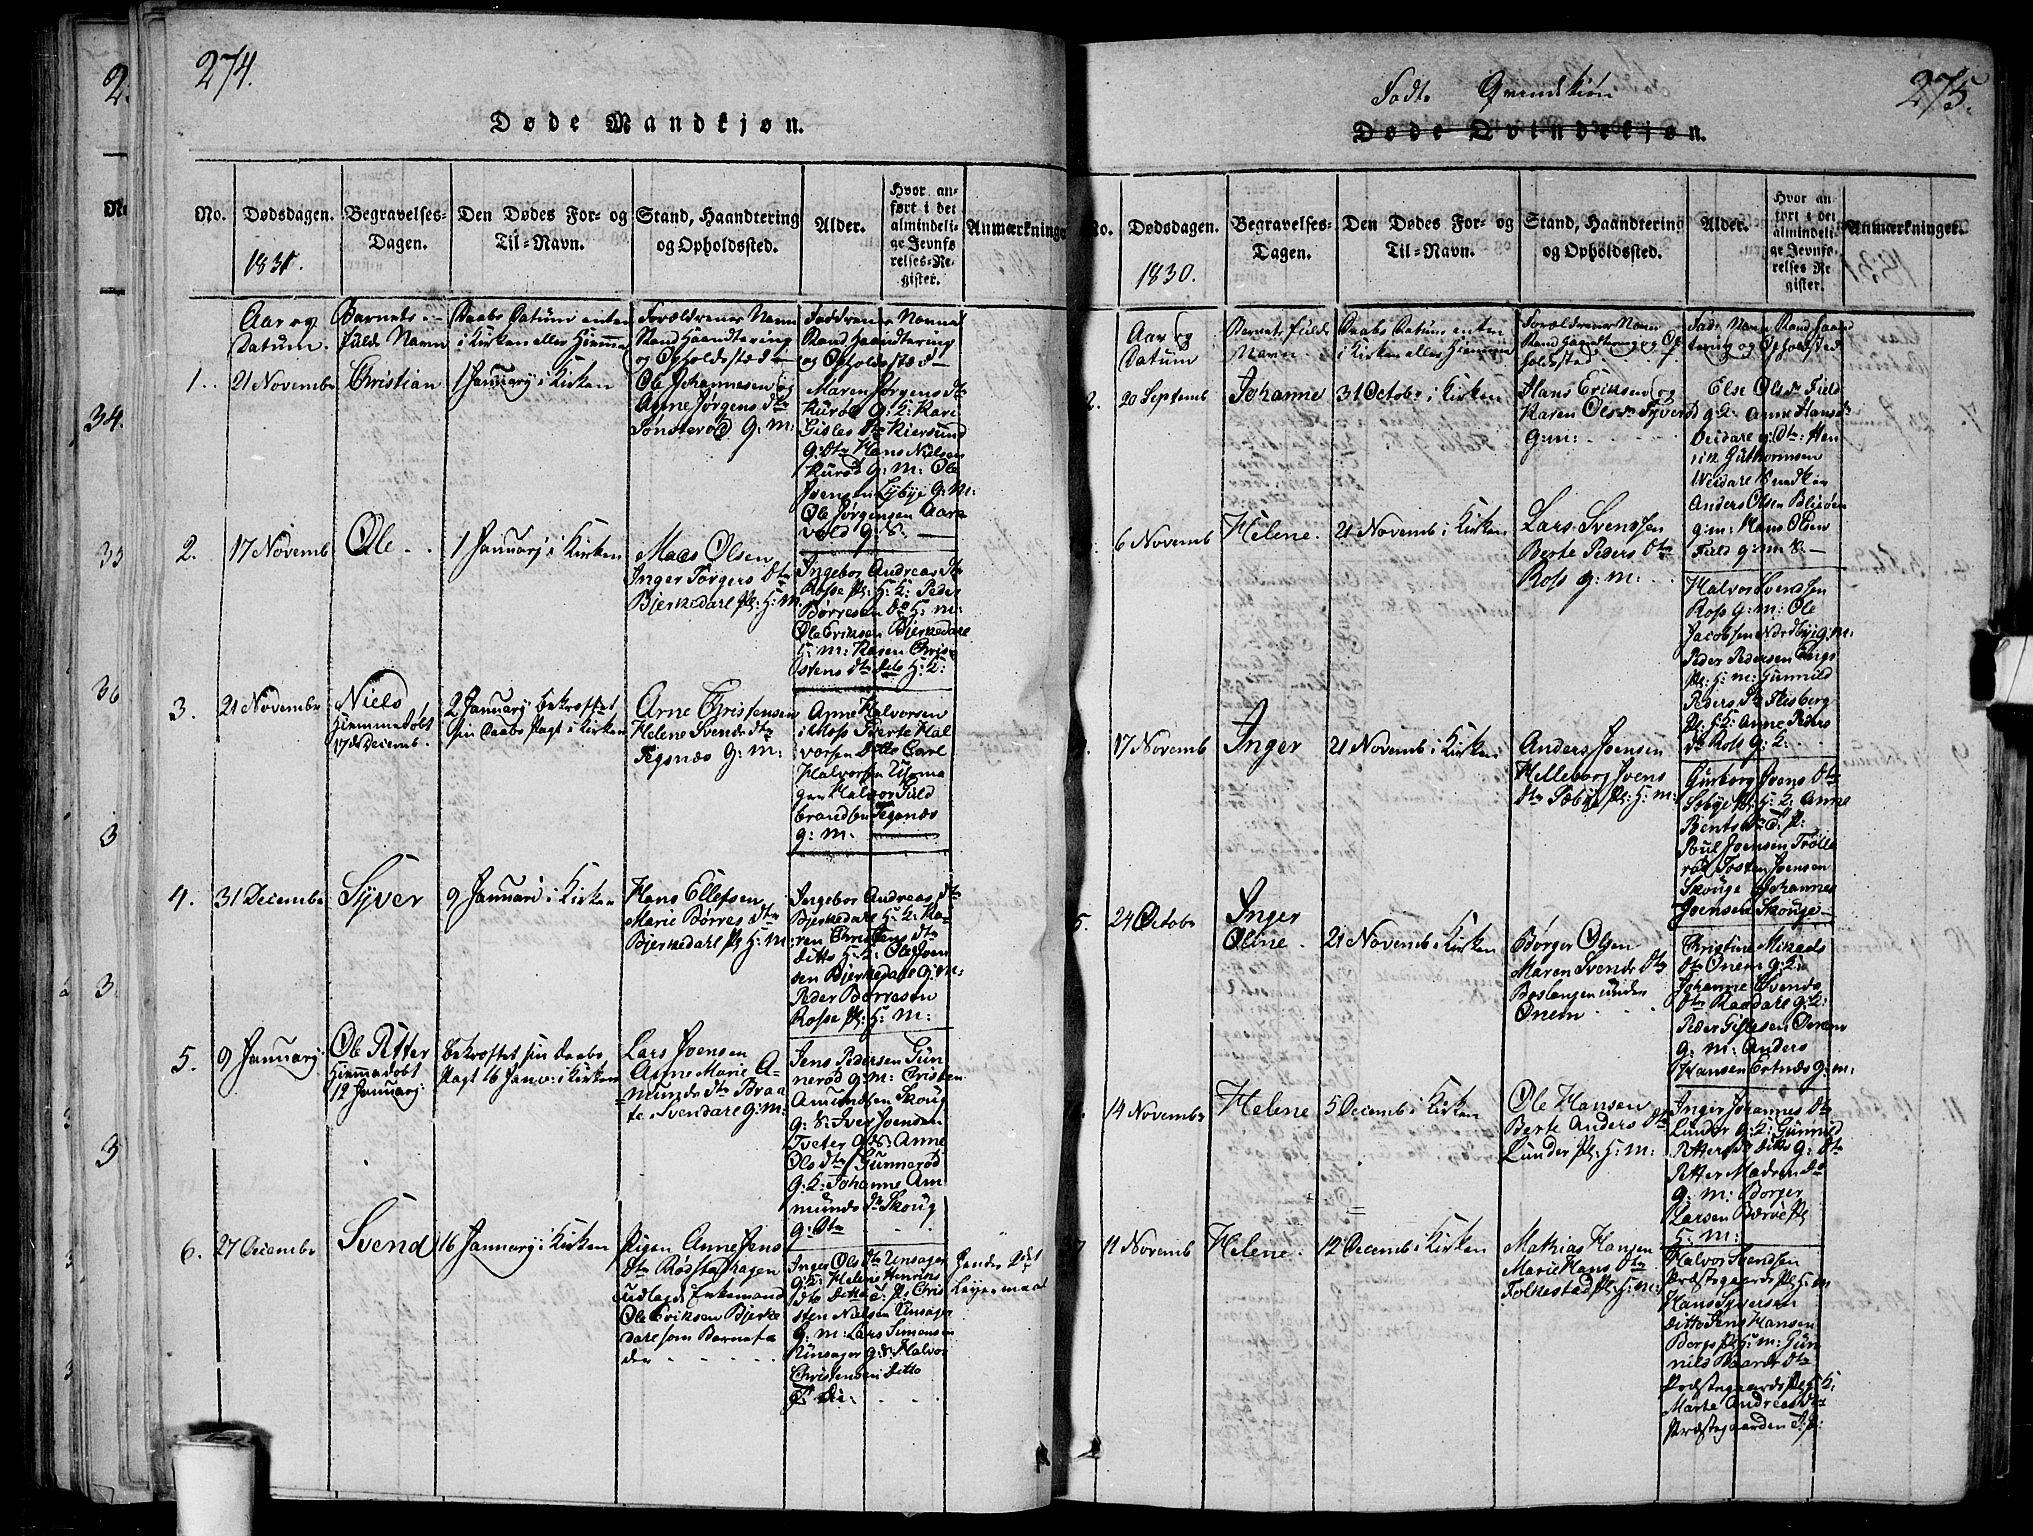 274.
Døde Mandkjøn.
No.
Dødsdagen.
1831.
Begravelses-
Dagen.
Den Dødes For- og
Til-Navn.
Stand, Haandtering
og Opholdssted.
Alder.
Hvor an-
ført i det
almindeli-
ge Jevnfø-
relses-Re-
gister.
Anmærkninge
Aar og
Datum.
Barnets
fulde Navn
Daabs Datum enten
i Kirken eller Hiemme
Forældrenes Navn
Stand Haandtering
og Opholdssted
Faddrenes Navne
Stand Haandtering
og Opholdssted
1.
21 Novembr
Christian
1 Januarj i Kirken
Ole Johannesen og
Anne Jørgens dtr
Sønsterød g: m:
Maren Jørgens dtr
Kurød g: K: Kari
Gisles dtr Kiersund
g: dtr Hans Nielsen
Kurød g: m: Ole
Joensen Lybye g: m:
Ole Jørgensen Aare
vold g: S:
2.
17 Novemb
Ole
1 Januarj i Kirken
Maas Olsen
Inger Törgers dtr
Bjerkedarl pl: H: m:
Ingebor Andreas dtr
Rosse pl: H: K: Peder
Børresen do H: m:
Ole Eriksen Bjerkedarl
H: m: Karen Chris
stens dtr dito H: K:
3.
21 Novembr
Niels
Hiemmedøbt
17de Decemb.
2 Januarj bekræftet
sin Daabs Pagt i Kirken
Arne Christensen
Helene Svends dtr
Tegnæs g: m:
Anne Halvorsen
i Moss Berte Hal
vorsen Ditto Carl
Halvorsen
Halvor Fuld
Tegnæs
g: m:
4.
31 Decembr
Syver
9 Januari i Kirken
Hans Ellefsen
Marie Børres dtr
Bjerkedarl pl: H: m:
Ingebor Andreas dtr
Bjerkedarl H: K: Ka-
ren Christens dtr
ditto H: K: Ole Joen
sen Bjerkedarl g: m:
Peder Børresen
Rosse pl: H: m:
5.
9 Januarj
Ole Petter
Hiemmedøbt
12 Januarj:
bekræftet sin Daabs
Pagt 16 Janv: i Kirken
Lars Joensen
Anne Marie A-
munds dtr Braa
te i Svendarl g: m:
Jens Pedersen Gun
nerød g: m: Christen
Amundsen Skoug
g: S: Iver Joensen
Tveter g: S: Anne
Ols dtr Gunnerød
g: K: Johanne Am
munds dr Skoug
g: dtr
6.
27 Decembr
Svend
16 Januarj i Kirken
Pigen Anne Jens
dtr Rødstadhagen
udlagde Enkemand
Ole Eriksen Bjerke
darl som Barnefa
der
Inger Ols dtr Unsager
g: K: Helene Henriks
dtr Ditto
sten Nielsen Unsager
g: m: Lars Simensen
Unsager g: S: Halvor
Christensen Ditto
Leyermaal
275.
Fødte Qvindekiøn
Døde Qvindekjøn.
No.
Dødsdagen.
1830.
Begravelses-
Dagen.
Den Dødes For- og
Til-Navn.
Stand, Haandtering
og Opholdssted.
Alder.
Hvor an-
ført i det
almindeli-
ge Jevnfø-
relses Re-
gister.
Anmærkninger.
Aar og
Datum
Barnets fulde
Navn
Daabs Datum enten
i Kirken eller Hiemme
Forældrenes Navn
Stand Haandtering og Op
holdssted
Fadr: Navn Stand Haand
tering og Opholdssted
2.
20 Septemb
Johanne
31 Octobr i Kirken
Hans Eriksen og
Karen Ols dr Syverød
g: m:
Else Ols dr Fuld
g: K: Anne Hans dr
g: dtr: Hen
rik Guthormsen
Anders Olsen
g: m: Hans Olsen
Fuld g: m:
6 Novemb
Helene
21 Novemb i Kirken
Lars Svensen
Berte Peders dtr
Ross g: m:
Halvor Svendsen
Ross g: m: Ole
Jacobsen Nordbye g: m:
Peder Pedersen Bergs
pl: H: m: Gunnild
Peders dtr Flesberg
pl: H: K: Anne Peders
dr Ross g: K:
17 Novemb
Inger
21 Novemb i Kirken
Anders Joensen
Helleborg Joens
dtr Sæbye pl: H: m:
Gurborg Joens dtr
Sæbye pl: H: K: Anne
Bents dr
Poul Joensen Trolle
rød Tosten Joensen
Skouge Johannes
Joensen Skouge
5.
24 Octobr
Inger
Oline
21 Novemb i Kirken
Børger Olsen
Maren Svends dtr
Boslangen under
Onem
Christine Mikaels
dtr Onem g: K:
Johanne Svends
dtr Raadarl g: K:
Peder Gislesen Onem
g: m: Anders
Hansen Ertnæs g: m:
14 Novembr
Helene
5 Decemb i Kirken
Ole Hansen
Berte Anders dtr
Lunder pl: H: m:
Inger Johannes dtr
Lunder g: K: Gunnild
Petters dr ditto g: dtr
Petter Madsen do
g: m: Borger
Larsen Bærøe pl
H: m:
11 Novemb
Helene.
12 Decemb i Kirken
Mathias Hansen
Marie Hans dtr
Folkestad pl: H: m:
Halvor Svendsen
Præstegaards pl: H: m
Hans Syversen
ditto Jens Hansen
Bergs pl: H: m: Gun
nild Baards dtr
Præstegaards pl: H: K:
Marte Andreas dtr
Præstegaarden
34.
35
36
3
3.
3